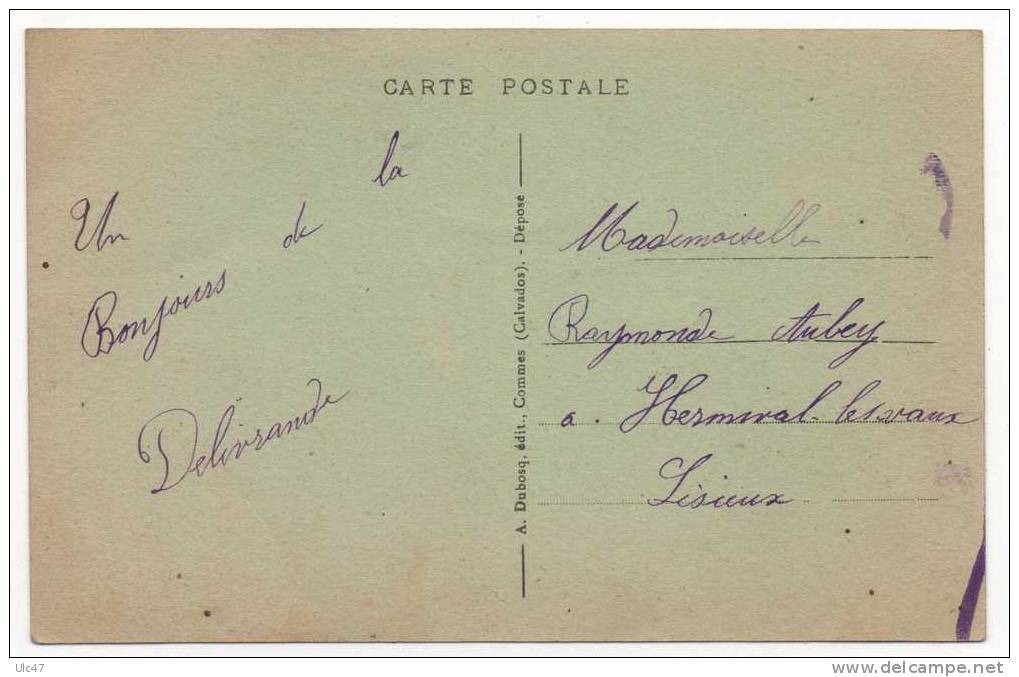 CARTE POSTALE
Un
Bonjours
de
la
Delivrande
A. Dubosq, édit., Commes (Calvados). - Déposé
Mademoiselle
Raymonde Aubey
a. Hermival-les vaux
Lisieux
Ulc47
www.delcampe.net